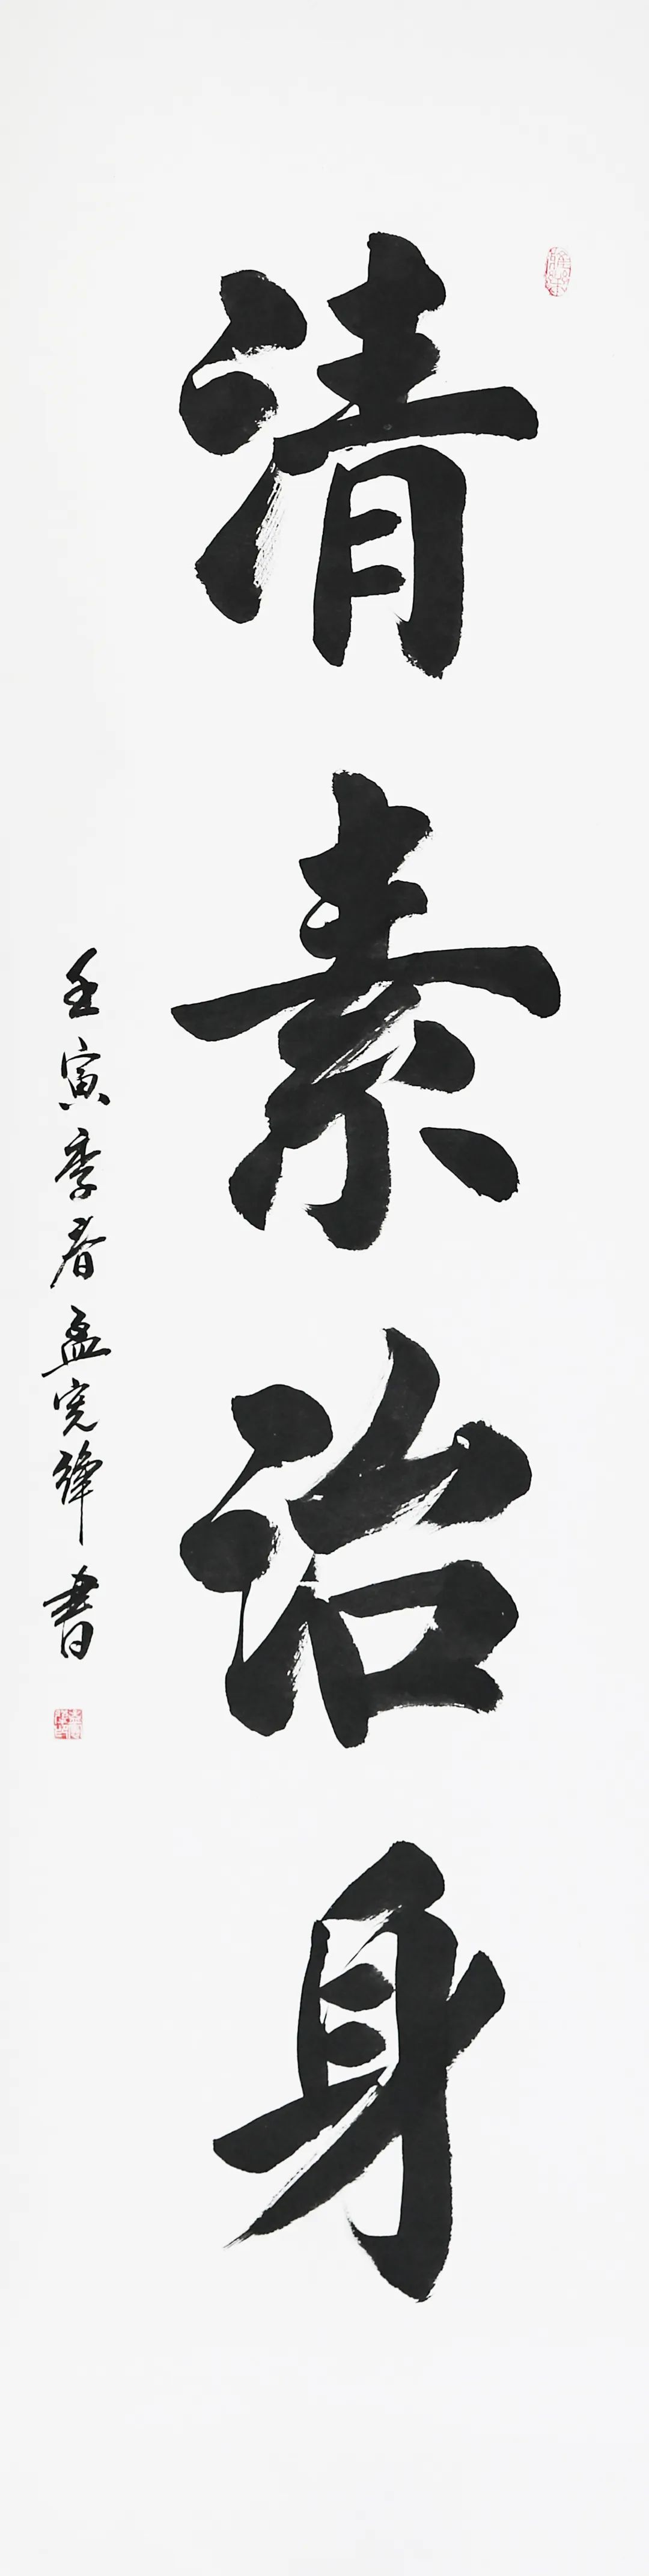 清素治身
壬寅季春孟宪锋书